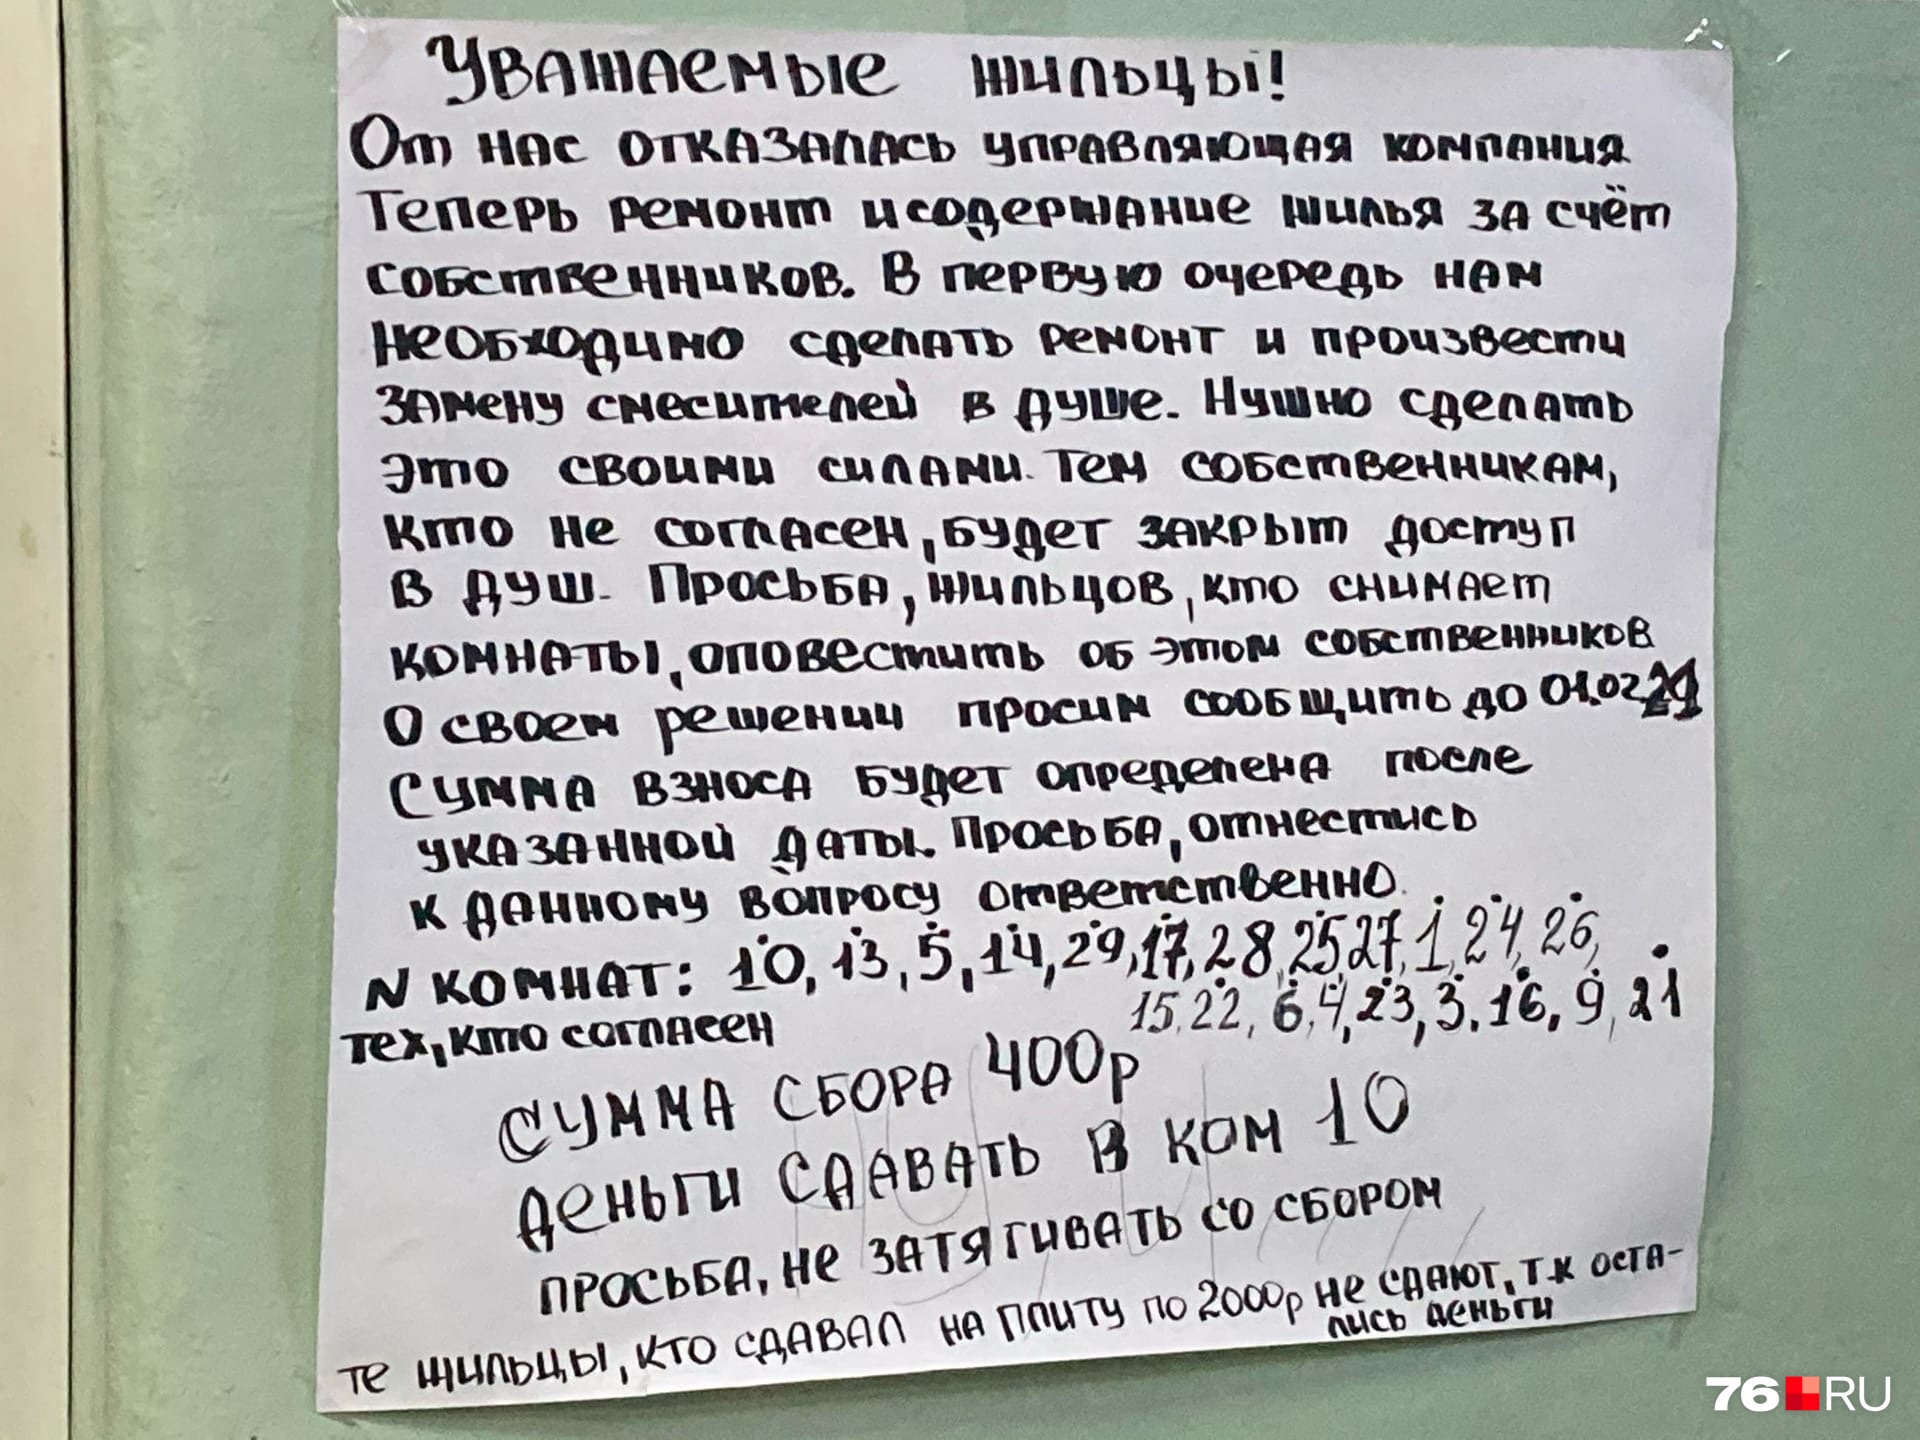 Уважаемые жильцы!
От нас отказалась управляющая компания
Теперь ремонт и содержание жилья за счёт
собственников. В первую очередь нам
необходимо сделать ремонт и произвести
замену смесителей в душе. Нужно сделать
это своими силами. Тем собственникам,
кто не согласен, будет закрыт доступ
в душ. Просьба, жильцов, кто снимает
комнаты, оповестить об этом собственников
О своем решении просим сообщить до 01.02.21
Сумма взноса будет определена после
указанной даты. Просьба, отнестись
к данному вопросу ответственно.
N комнат: 10, 13, 5, 14, 29, 17, 28, 25, 27, 1, 24, 26,
15, 22, 6, 4, 23, 3, 16, 9, 21
тех, кто согласен
Сумма сбора 400р
Деньги сдавать в ком 10
просьба, не затягивать со сбором
те жильцы, кто сдавал на плиту по 2000р не сдают, т.к оста-
лись деньги
76 RU